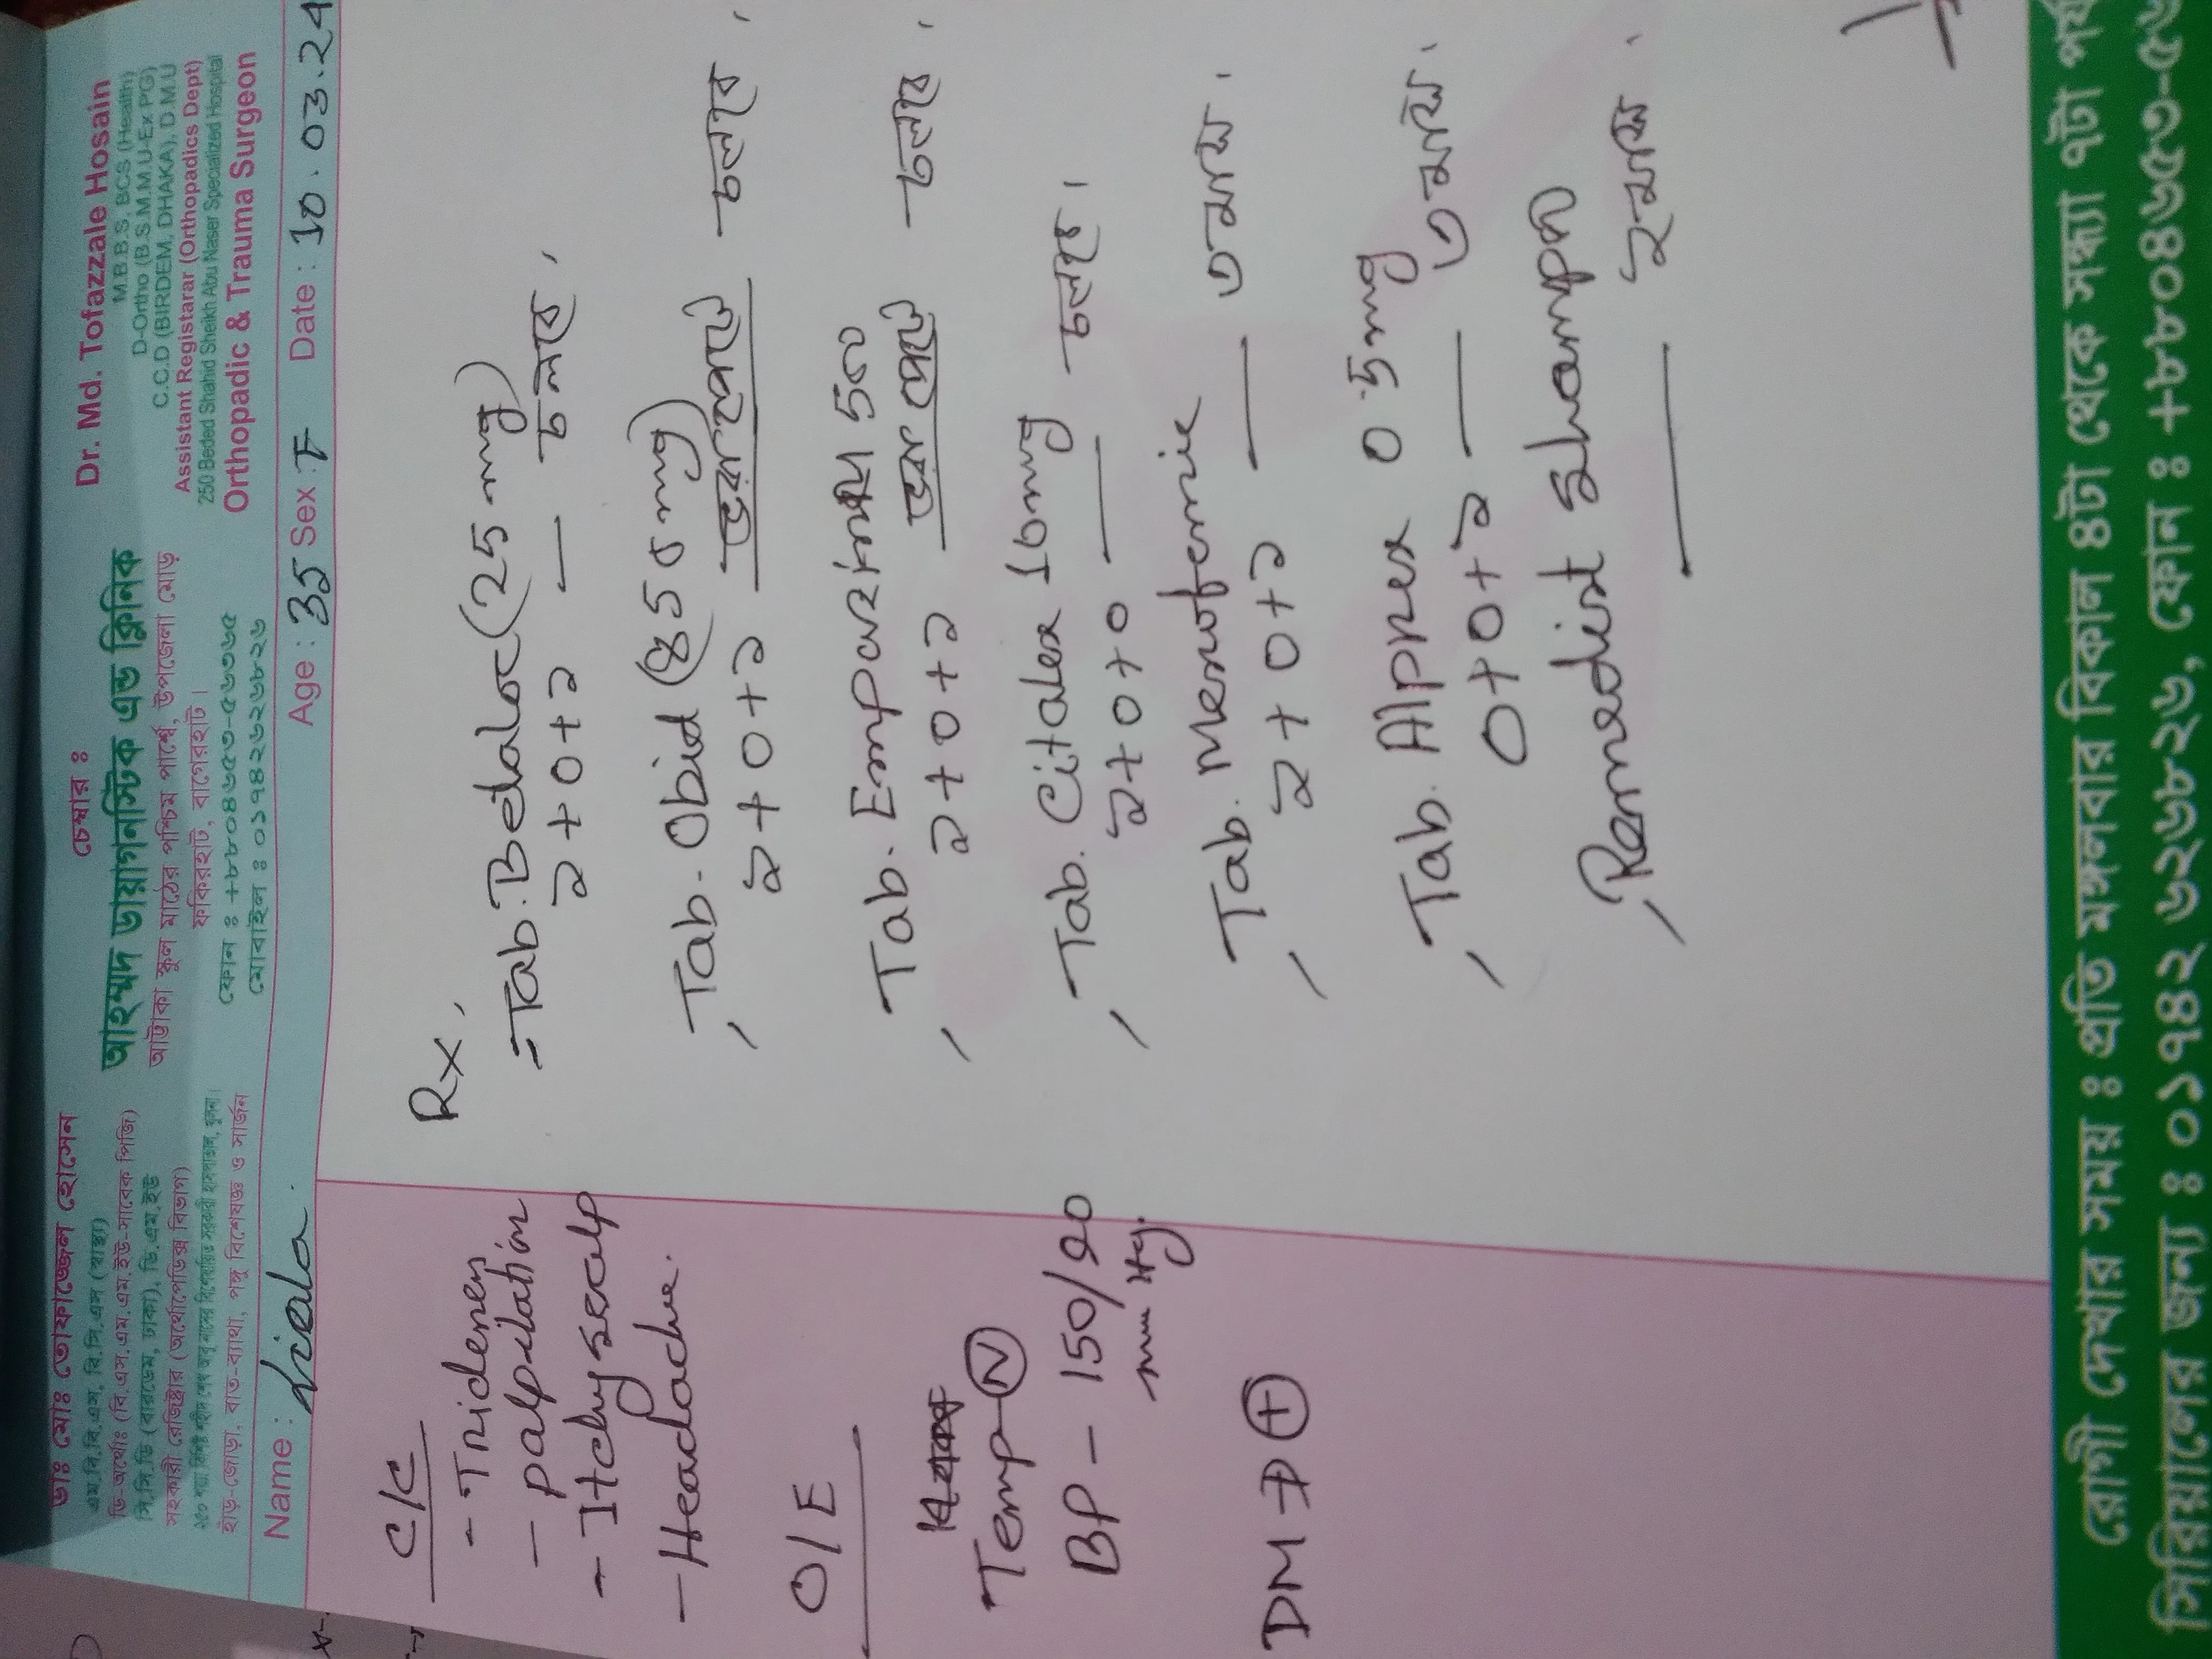 ডাঃ মোঃ তোফাজ্জেল হোসেন
এম.বি.বি.এস, বি.সি.এস (স্বাস্থ্য)
ডি-অর্থোঃ (বি.এস.এম.এম.ইউ-সাবেক পিজি)
সি.সি.ডি (বারডেম, ঢাকা), ডি.এম.ইউ
সহকারী রেজিষ্ট্রার (অর্থোপেডিক্স বিভাগ)
২৫০ শয্যা বিশিষ্ট শহীদ শেখ আবু নাসের বিশেষায়িত সরকারী হাসপাতাল, খুলনা।
হাঁড়-জোড়া, বাত-ব্যাথা, পঙ্গু বিশেষজ্ঞ ও সার্জন
চেম্বার ঃ
আহম্মদ ডায়াগনস্টিক এন্ড ক্লিনিক
আট্টাকা স্কুল মাঠের পশ্চিম পার্শ্বে, উপজেলা মোড়
ফকিরহাট, বাগেরহাট।
ফোন ঃ +৮৮০৪৬৫৩-৫৬৩৬৫
মোবাইল ঃ ০১৭৪২৬২৬৮২৬
Dr. Md. Tofazzale Hosain
M.B.B.S, BCS (Health)
D-Ortho (B.S.M.M.U-Ex PG)
C.C.D (BIRDEM, DHAKA), D.M.U
Assistant Registarar (Orthopadics Dept)
250 Beded Shahid Sheikh Abu Naser Specialized Hospital
Orthopadic & Trauma Surgeon
Name : Age : 35 Sex : F Date : 10.03.24
C/C
- palpitation
- Itchy scalp
- Headache.
O/E
Temp-(N)
BP - 150/90
mm Hg.
DM → (+)
Rx,
Tab. Betaloc (25 mg)
১+০+১ — চলবে,
Tab. Obid (850 mg)
১+০+১ ভরা পেটে চলবে,
Tab. 500
১+০+১ ভরা পেটে চলবে,
Tab. Citalex 10mg
১+০+০ — চলবে।
Tab.
১+০+১ — ৩ মাস।
Tab. Alprex 0.5mg
০+০+১ — ৩ মাস,
Remedist shampoo
— ২ মাস.
রোগী দেখার সময় ঃ প্রতি মঙ্গলবার বিকাল ৪টা থেকে সন্ধ্যা ৭টা পর্য
সিরিয়ালের জন্য ঃ ০১৭৪২ ৬২৬৮২৬, ফোন ঃ +৮৮০৪৬৫৩-৫৬